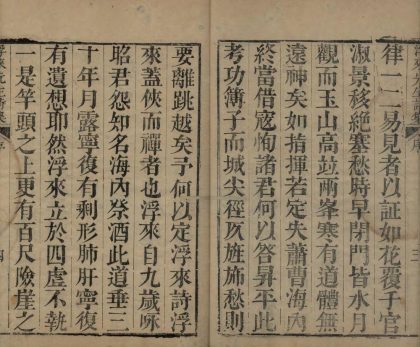 律一二易見者以証如花覆千官
淑景移絶塞愁時早閉門皆水月
觀而玉山高竝兩峯寒有道體無
遠神矣如指揮若定失蕭曹海內
終當借宼恂諸君何以答昇平此
考功簿子而城尖徑仄旌斾愁則
要離跳越矣予何以定浮來詩浮
來蓋俠而禪者也浮來自九歲咏
昭君怨知名海內祭酒此道垂三
十年月露寧復有剩形肺肝寧復
有遺想耶然浮來立於四虛不執
一是竿頭之上更有百尺險崖之